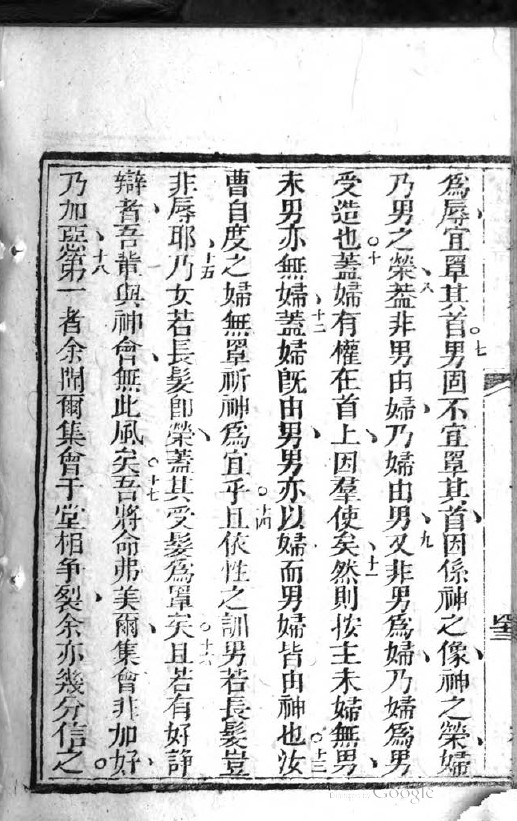 為辱宜罩其首○七男固不宜罩其首因係神之像神之榮婦
乃男之榮八蓋非男由婦乃婦由男九又非男為婦乃婦為男
受造也○十蓋婦有權在首上因羣使矣十一然則按主未婦無男
未男亦無婦十二蓋婦既由男男亦以婦而男婦皆由神也○十三汝
曹自度之婦無罩祈神為宜乎○十四且依性之訓男若長髮豈
非辱耶十五乃女若長髮即榮蓋其受髮為罩矣○十六且若有好諍
辯者吾輩與神會無此風矣○十七吾將命弗美爾集會非加好
乃加惡十八第一者余聞爾集會于堂相爭裂余亦幾分信之○
Google